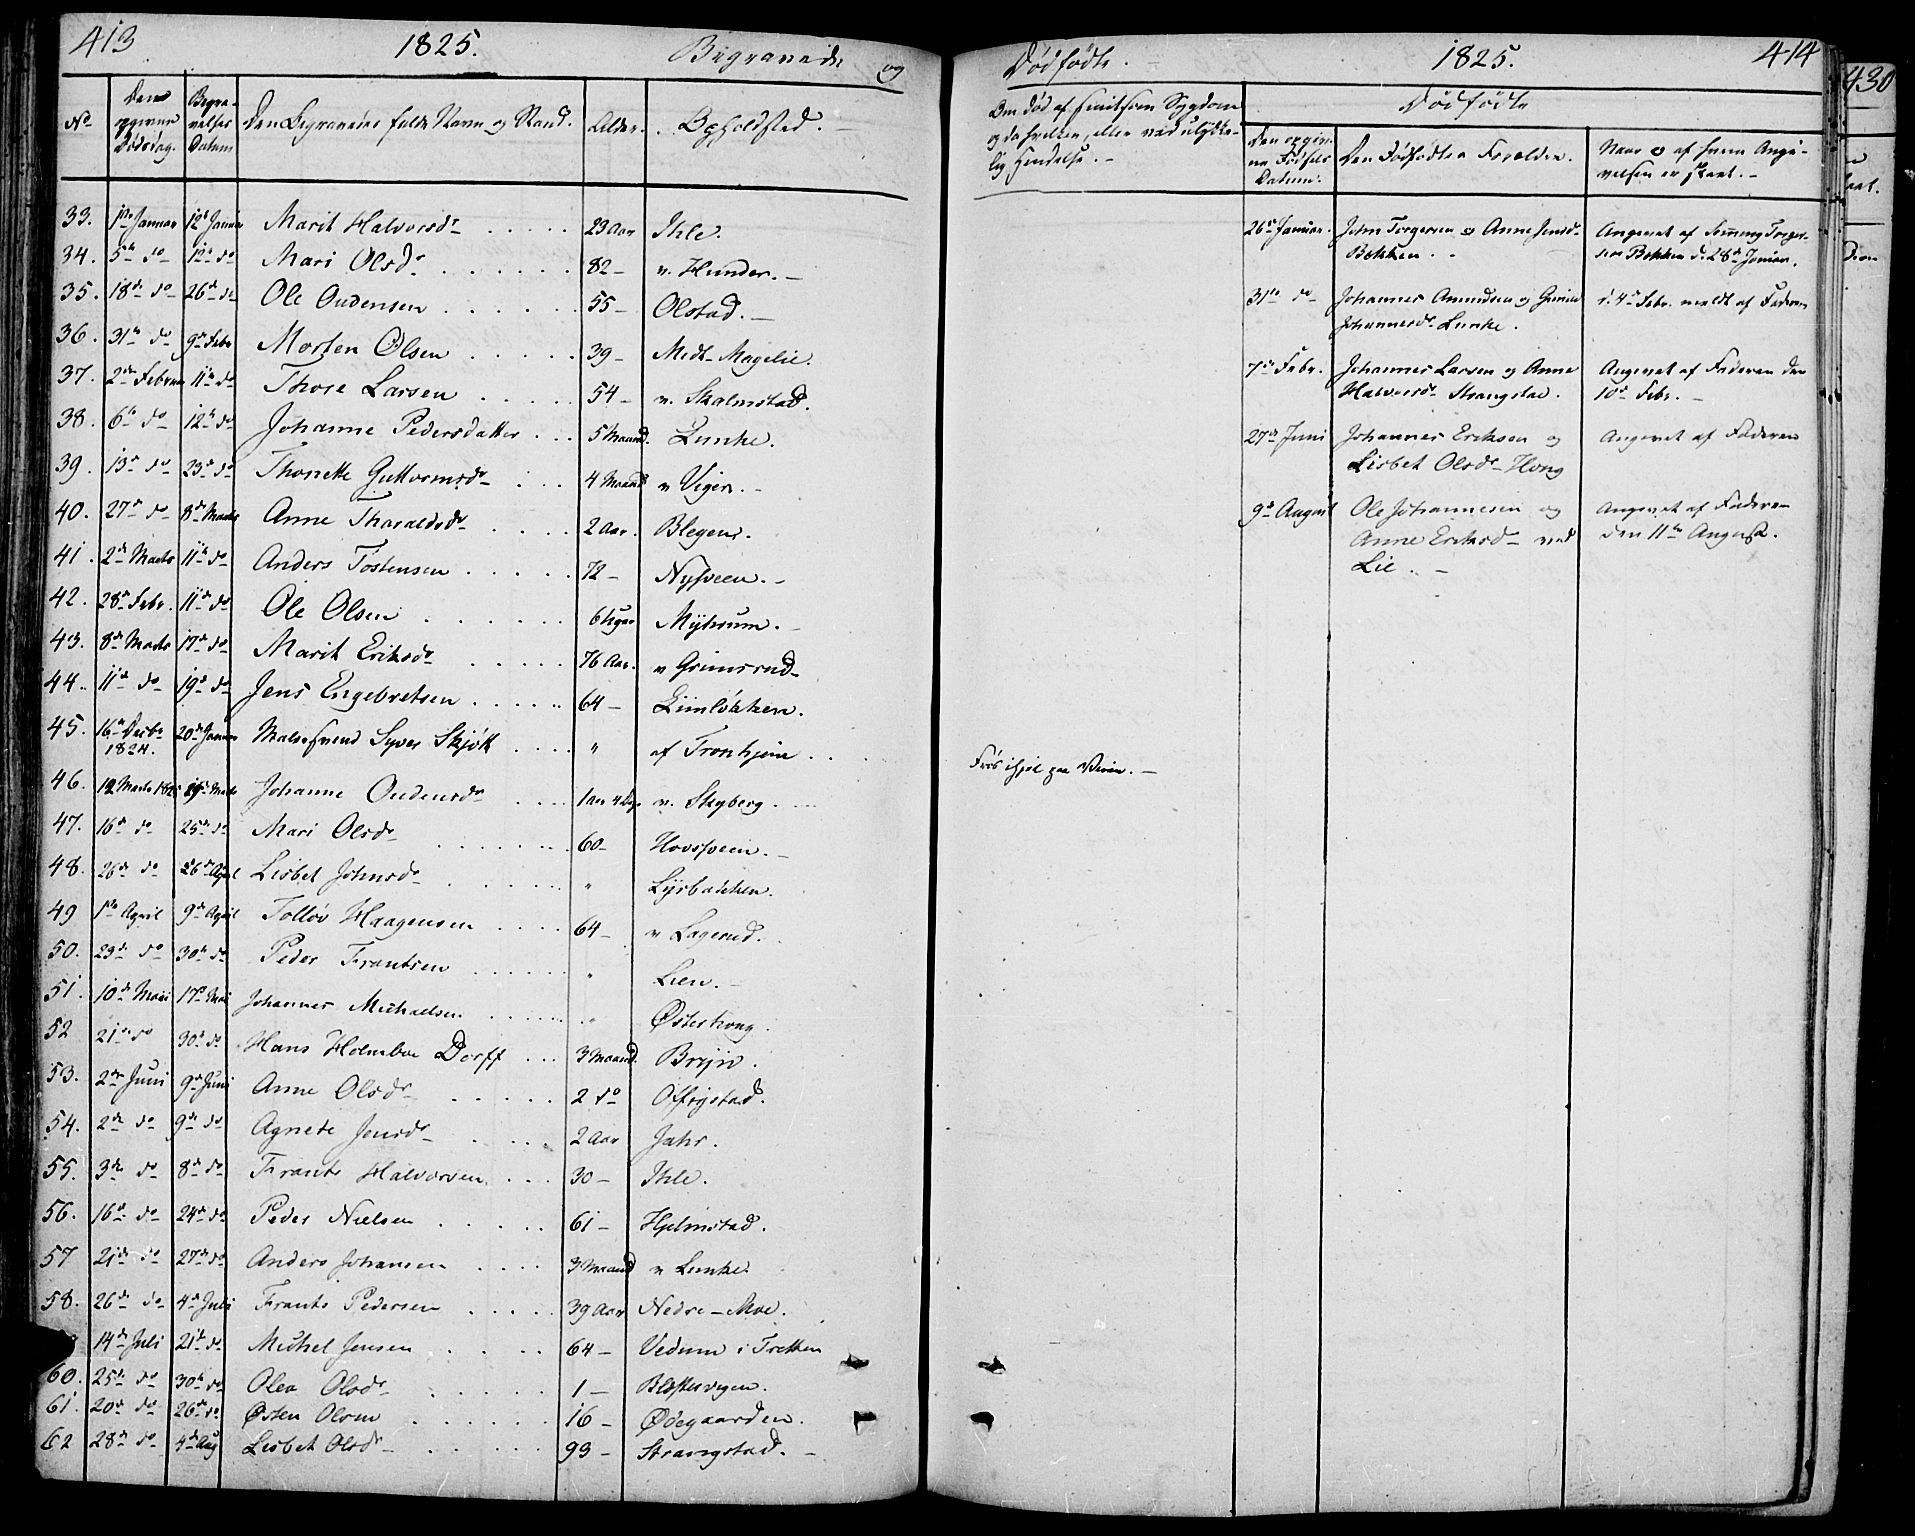 413 1825. Begravede og
No Den opgivne Dødsdag. Begravelses Datum Den Begravedes fulde Navn og Stand. Alder. Opholdsted.
33. 1ste Januar 12te Januar Marit Halvorsdr 23 Aar Ihle.
34. 5te do 12te do Mari Olsdr 82 - n. Hunder. -
35. 18de do 26de do Ole Oudensen 55 - Olstad. -
36. 31te do 9de Febr Morten Olsen 39 - Medt-Magelie.
37. 2den Februar 11te do Thore Larsen 54 - n. Skalmstad.
38. 6te do 12te do Johanne Pedersdatter 5 Maaned. Lunke.
39. 13de do 23de do Thonette Guttormsdr 4 Maaned n Vigen. -
40. 27de do 8de Marts Anne Tharaldsdr 2 Aar. Blegen.
41. 2den Marts 11te do Anders Tostensen 72 - Nysveen. -
42. 28de Febr. 11te do Ole Olsen 6 Uger Myhrum. -
43. 8de Marts 17de do Marit Eriksdr 76 Aar. n Grimsrud -
44. 11te do 19de do Jens Engebretsen 64 - Liimløkken.
45. 16de Decbr 1824. 20de Januar Malersvend Syver Skjøtt " af Tronhjem
46. 12 Marts 1825 19de Marts Johanne Oudensdr 1 aar 4 Dage n. Skyberg.
47. 16de do 25de do Mari Olsdr 60 - Hovsveen. -
48. 26de do 26de April Lisbet Johnsdr " Lysbakken.
49 1ste April 9de April Tolløv Haagensen 64 - n Lagerud.
50. 23de do 30te do Peder Frantsen " Lien. -
51. 10de Maii 17de Mai Johannes Michaelsen " Østerhong.
52 21de do 30te do Hans Holmboe Dorff 3 Maaned. Bryn.
53. 2den Juni 9de Juni Anne Olsdr 2 do Offigstad.
54. 2de do 9de do Agnete Jensdr 2 Aar Jahr.
55. 3de do 8de do Frants Halvorsen 30 - Ihle.
56. 16de do 24de do Peder Nielsen 61 - Hjelmstad.
57 21de do 27de do Anders Johansen 3 Maaned n Lunke.
58. 26de do 4de Juli Frants Pedersen 39 Aar Nedre-Moe.
14de Juli 21de do Mickel Jensen 64 - Vedum i Tretten
60. 25de do 30te do Olea Olsdr 1 - Blæstervigen.
61. 20de do 26de do Østen Olsen 16 - Ødegaarden.
62 28de do 4de Aug Lisbet Olsdr 93 - Strangstad. -
Dødfødte. 1825. 414
Om død af smitsom Sygdom og da hvilken, eller ved ulykkelig Hendelse. -
Dødfødte
Den opgivne Fødsels Datum. Den Dødfødtes Forældre. Naar og af hvem Angivelsen er skeet. -
26de Januar. John Torgersen og Anne Jensdr Bakken. Angivet af Torgersen Bakken d. 28de Januar.
31te do Johannes Amundsen og Johannesdr Lunke. d. 4de Febr. meldt af Faderen
7de Febr. Johannes Larsen og Anne Halvorsdr Strangstad. Angivet af Faderen den 10de Febr. -
27de Juni Johannes Eriksen og Lisbet Olsdr Hong Angivet af Faderen
9de August Ole Johannesen og Anne Eriksdr ved Lie. - Angivet af Faderen den 11te August.
Frøs ihjel paa Veien. -
430